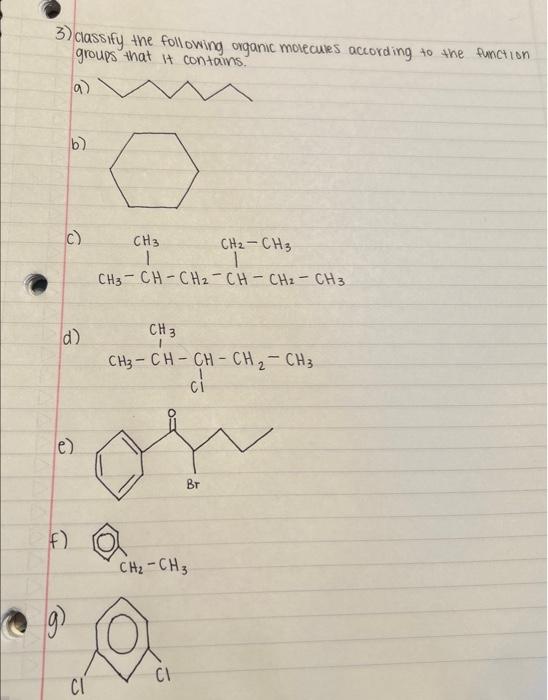 3) classify the following organic molecules according to the function
groups that it contains.
a)
b)
c)
CH3 CH2-CH3
CH3-CH-CH2-CH-CH2-CH3
d)
CH3
CH3-CH-CH-CH2-CH3
Cl
e)
O
Br
f)
CH2-CH3
g)
Cl Cl